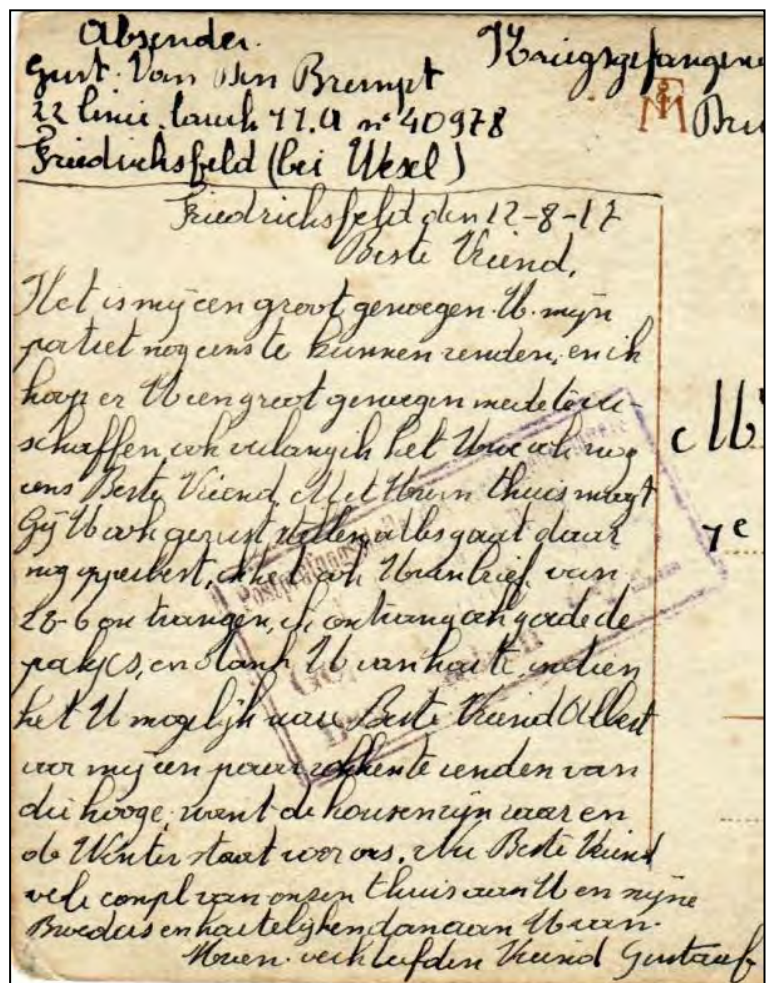 Absender.
Gust. Van Den Brempt
22 linie. 11.A n° 40978
Friedrichsfeld (bei Wesel)
Kriegsgefangene
Bru
Friedrichsfeld den 12-8-17
Beste Vriend,
Het is mij een groot genoegen. U. mijn
portret nog eens te kunnen zenden, en ik
hoop er U een groot genoegen mede te ver-
schaffen, ook verlang ik het Uwe ook nog
eens Beste Vriend. Met Uwen thuis moogt
Gij U ook gerust stellen, alles gaat daar
nog opperbest, ook Uwen brief van
28-6 ontvangen, ik ontvang ook goed de
pakjes, en dank U van harte, indien
het U mogelijk ware Beste Vriend Albert
voor mij een paar zokken te zenden van
die hooge, want de kousen zijn raar en
de Winter staat voor ons. Nu Beste Vriend
vele compl van onzen thuis aan U en mijne
Broeders en hartelijken dan aan U van
Uwen verkleefden Vriend Gustaaf
7e